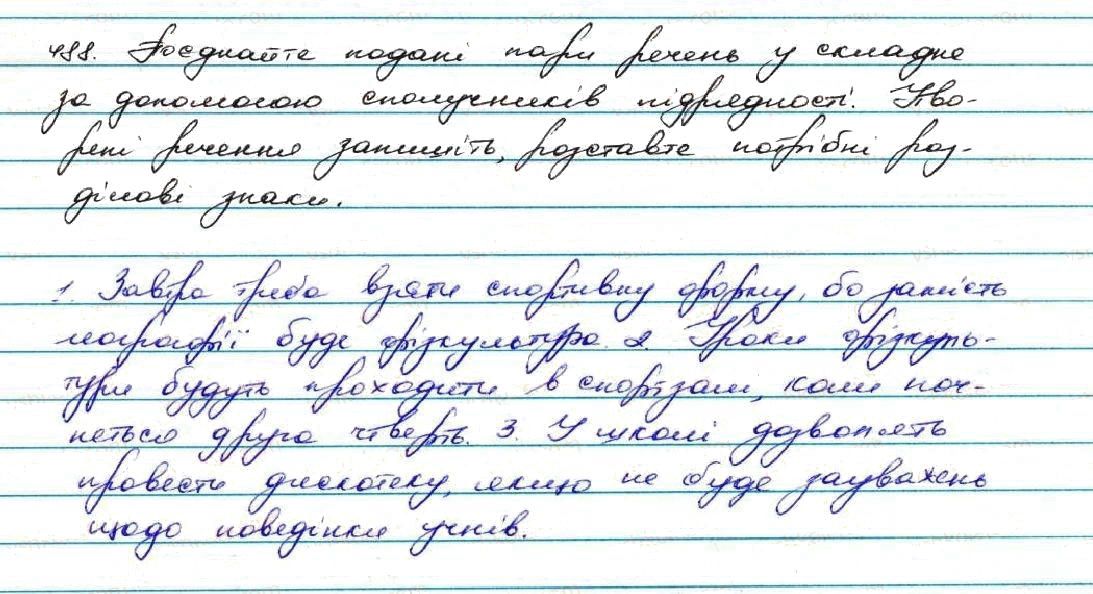 488. Поєднайте подані пари речень у складне
за допомогою сполучників підрядності. Утво-
рені речення запишіть, розставте потрібні роз-
ділові знаки.
1. Завтра треба взяти спортивну форму, бо замість
географії буде фізкультура. 2. Уроки фізкуль-
тури будуть проходити в спортзалі, коли поч-
неться друга чверть. 3. У школі дозволять
провести дискотеку, якщо не буде зауважень
щодо поведінки учнів.